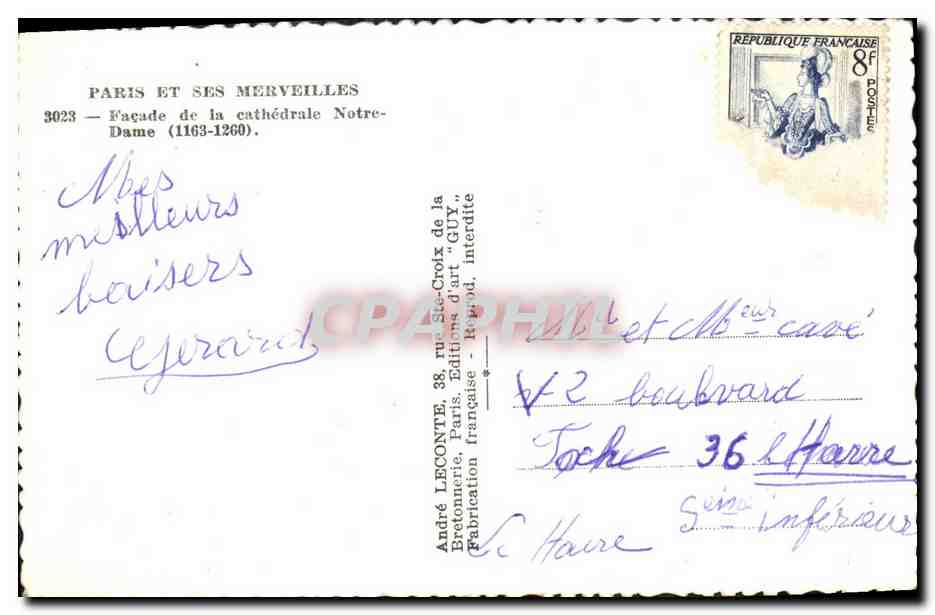 PARIS ET SES MERVEILLES
3023 — Façade de la cathédrale Notre-
Dame (1163-1260).
Mes
meilleurs
baisers
Gerard
André LECONTE, 38, rue Ste-Croix de la
Bretonnerie, Paris. Editions d'art "GUY„
Fabrication française - Reprod. interdite
RÉPUBLIQUE FRANÇAISE
8f
POSTES
et Meur cavé
2 boulevard
36 le Havre
Seine inférieure
Le Havre
CPAPHIL